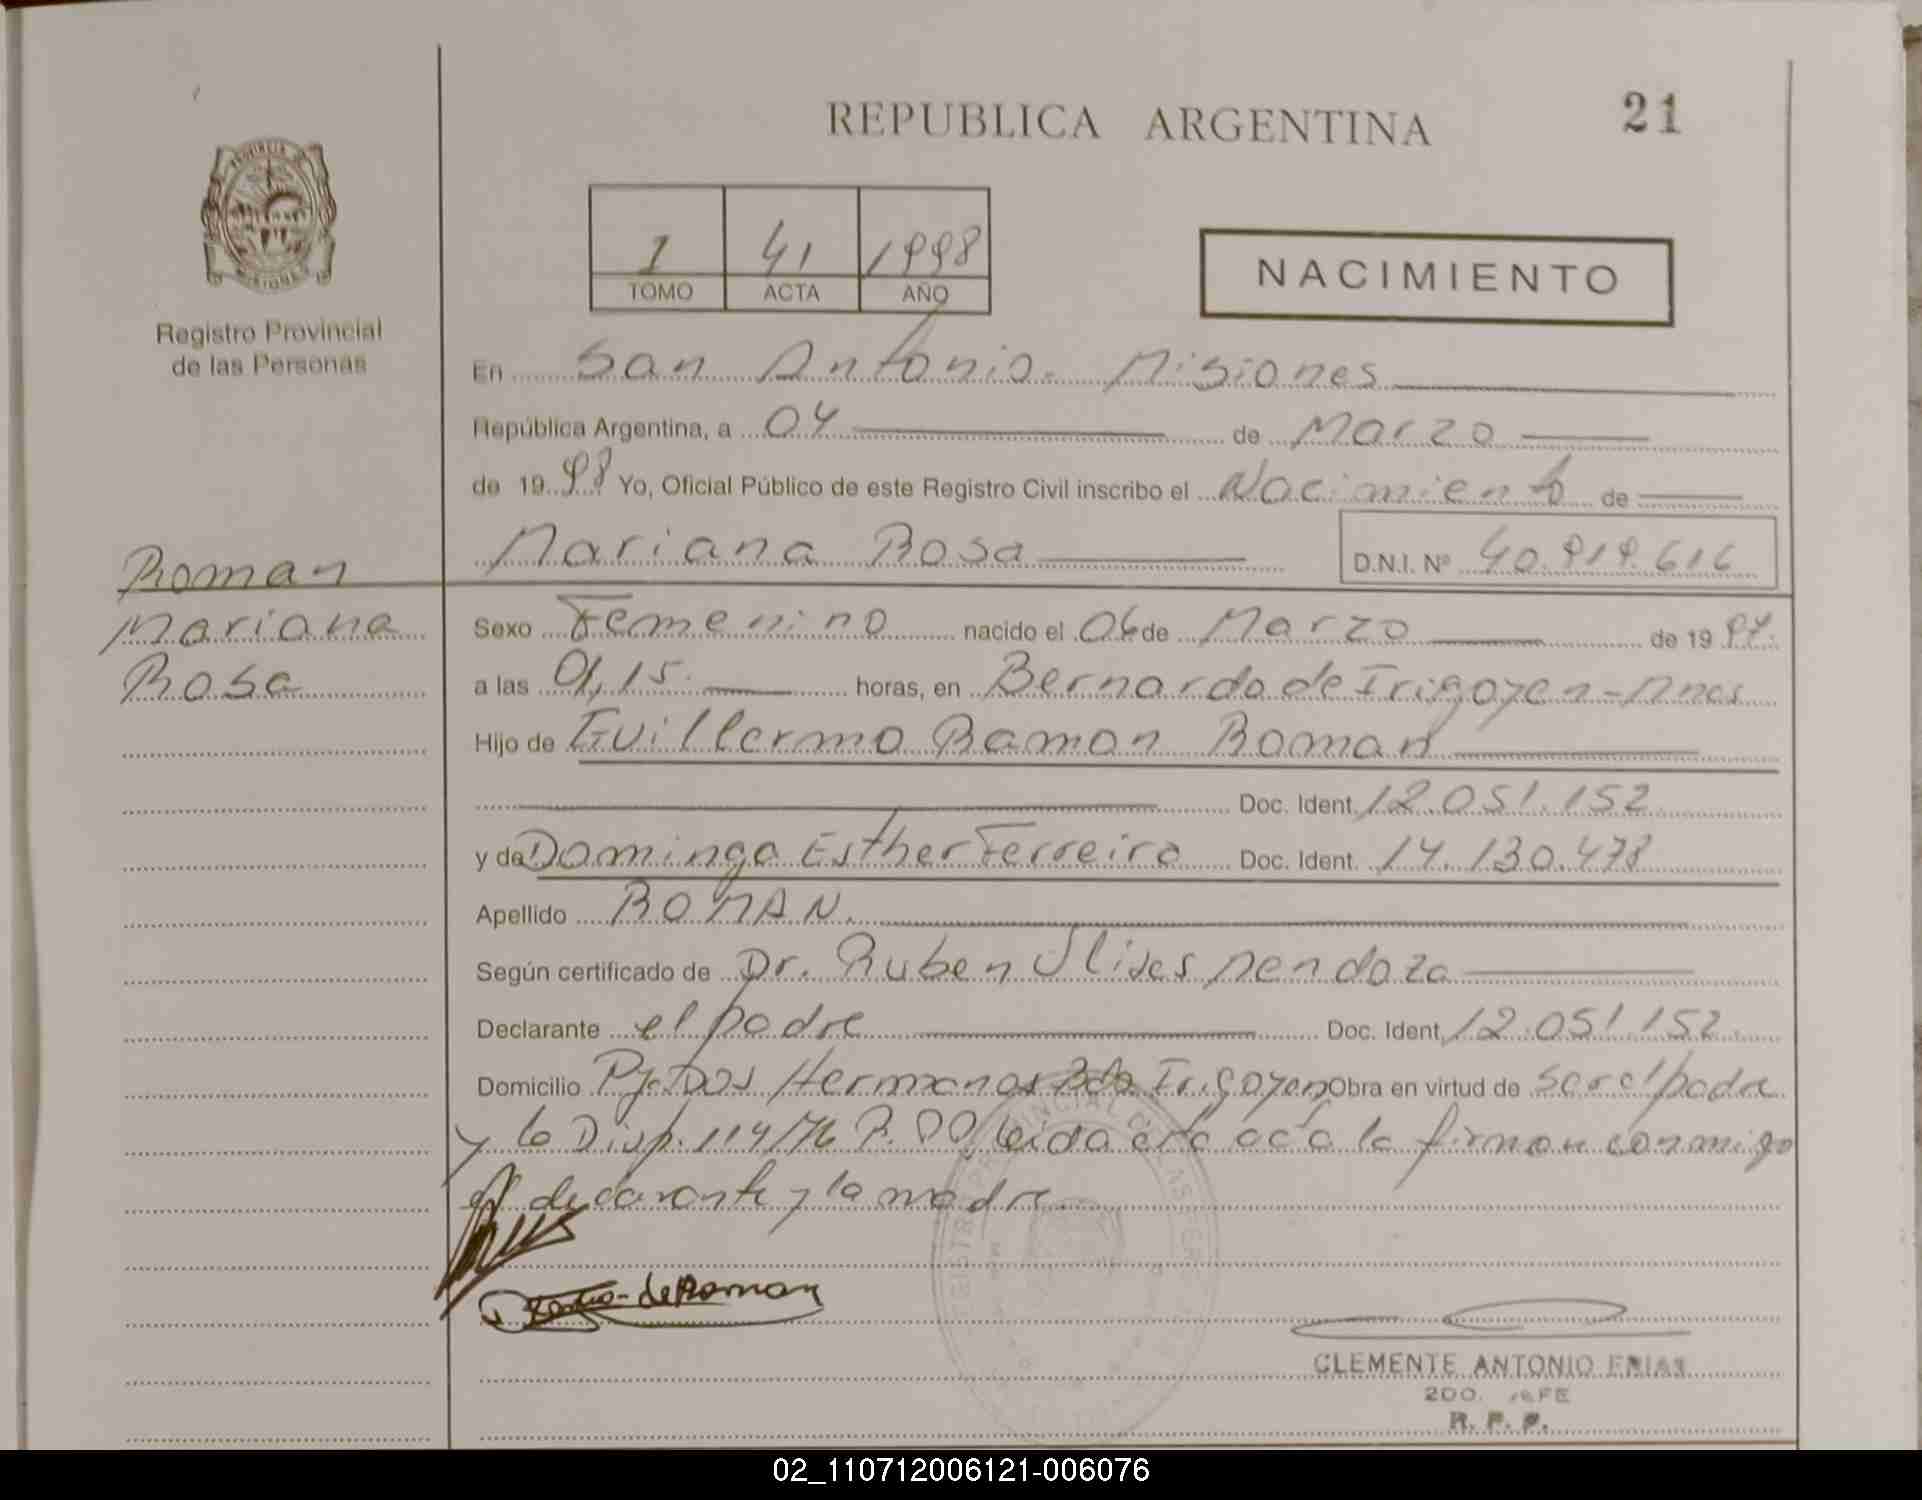 REPUBLICA ARGENTINA
21
1 41 1998
TOMO ACTA AÑO
NACIMIENTO
Registro Provincial
de las Personas
En San Antonio. Misiones
República Argentina, a 04 de Marzo
de 1998 Yo, Oficial Público de este Registro Civil inscribo el Nacimiento de
Mariana Rosa D.N.I. Nº 40.919.616
Roman
Mariana
Rosa
Sexo Femenino nacido el 06 de Marzo de 1997.
a las 01,15. horas, en Bernardo de Irigoyen - Mnes
Hijo de Guillermo Ramon Roman
Doc. Ident. 12.051.152
y de Dominga Esther Ferreira Doc. Ident. 14.130.478
Apellido ROMAN.
Según certificado de Dr. Ruben Ulises Mendoza
Declarante el padre Doc. Ident. 12.051.152.
Domicilio Pje. Dos Hermanas Bdo Irigoyen Obra en virtud de ser el padre
y la Disp. 114/76 leida acta la firman conmigo
el declarante y la madre
de Roman
CLEMENTE ANTONIO FRIAS
2DO. JEFE
R. P. P.
02_110712006121-006076